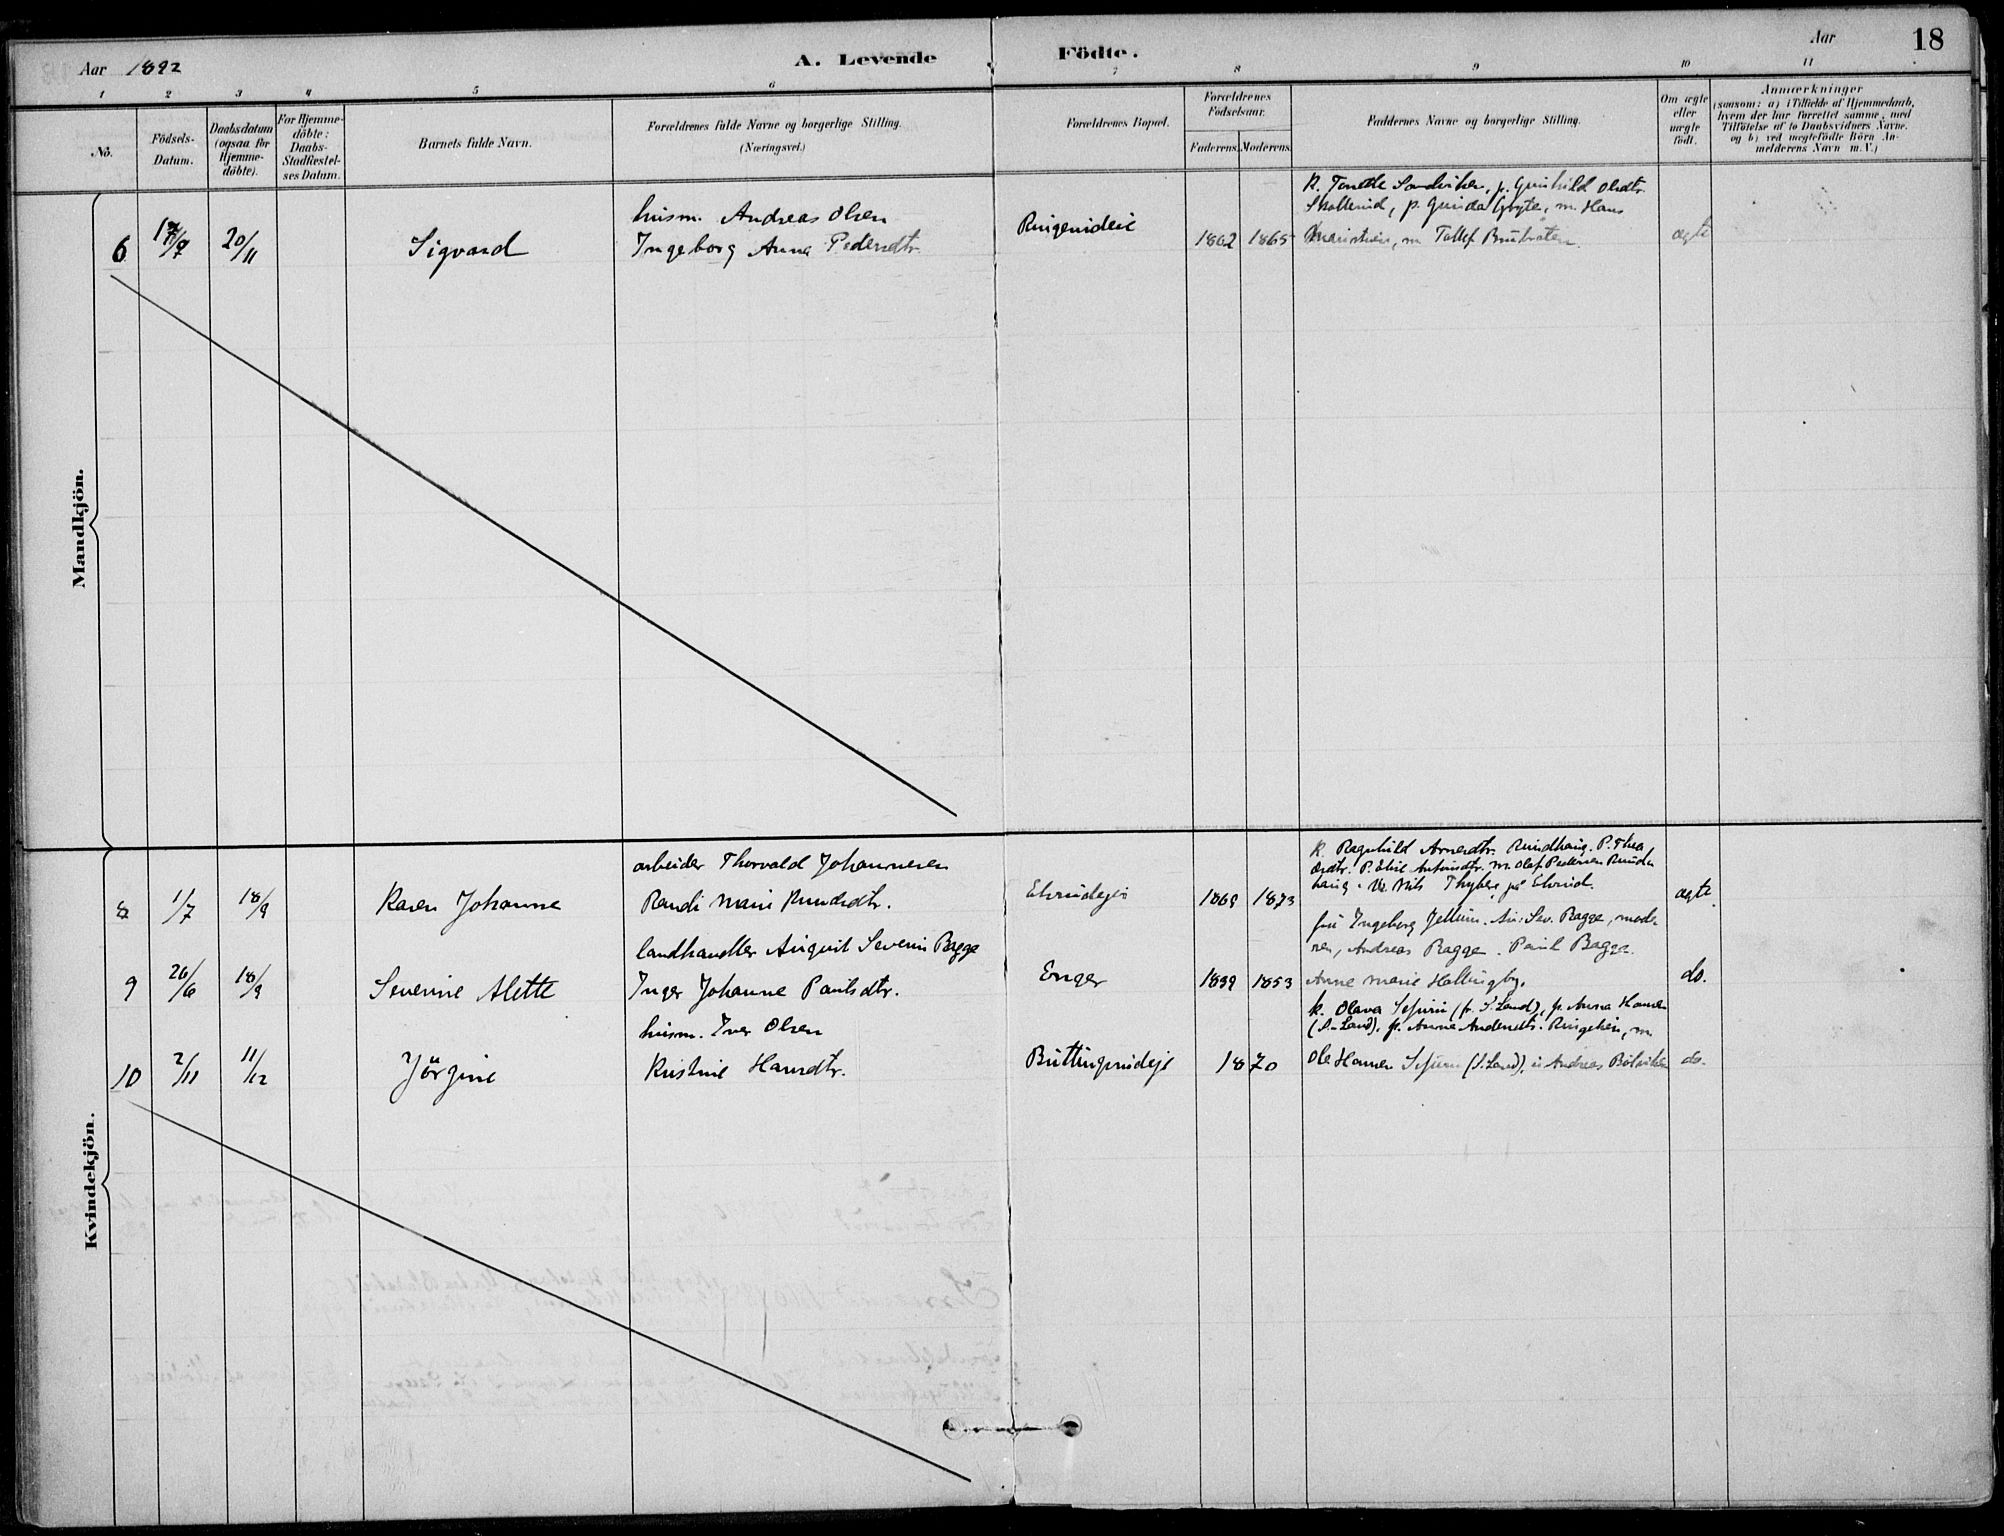 Aar 1892
A. Levende
Födte.
Aar
18
1 2 3 4 5 6 7 8 9 10 11
No.
Födsels-
Datum.
Daabsdatum
(ogsaa for
Hjemme-
döbte).
For Hjemme-
döbte:
Daabs-
Stadfæstel-
ses Datum.
Barnets fulde Navn.
Forældrenes fulde Navne og borgerlige Stilling.
(Næringsvei.)
Forældrenes Bopæl.
Forældrenes
Födselsaar.
Faderens. Moderens.
Faddernes Navne og borgerlige Stilling.
Om ægte
eller
uægte
födt.
Anmærkninger
(saasom: a) i Tilfælde af Hjemmedaab,
hvem der har forrettet samme, med
Tilföielse af to Daabsvidners Navne.
og b) ved uægtefödte Börn An-
melderens Navn m.V.)
Mandkjön.
husm. Andreas Olsen
K. Tonette Sandviken, p. Gunhild Olsdtr.
p. Gunda m. Hans
6 20/11 Sigvard Ingeborg Anna Pedersdtr. 1862 1865 m ægte
Kvindekjön.
arbeider Thorvald Johannesen
K. Ragnhild Arnesdtr. Rundhaug. P. Thea
P. Elise m. Olaf Pedersen
8 1/7 18/9 Karen Johanne Randi Marie Knudsdtr. 1869 1873 haug. Nils på ægte
landhandler August Severin Bagge
fru Ingeborg Jellum. Au: Sev. Bagge, mode-
ren, Andreas Bagge. Paul Bagge
9 26/6 18/9 Severine Alette Inger Johanne Paulsdtr. Enger 1839 1853 Anne Marie Hallingby. do.
husm. Iver Olsen
k. Olava (fr. S. Land), p. Anna Hansen
(S. Land), p. Anne Andersdtr. m.
10 2/11 11/12 Jörgine Kristine Hansdtr. 1870 Ole Hansen (S. Land), Andreas do.